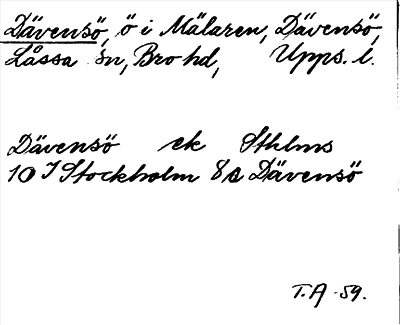 Dävensö, ö i Mälaren, Dävensö,
Låssa sn, Bro hd, Upps. l.
Dävensö ek Sthlms
10 I Stockholm 8 a Dävensö
T.A -59.